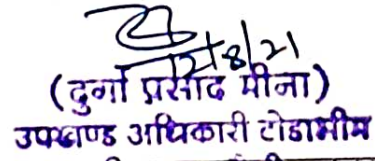 12/8/21
(दुर्गा प्रसाद मीना)
उपखण्ड अधिकारी टोडाभीम